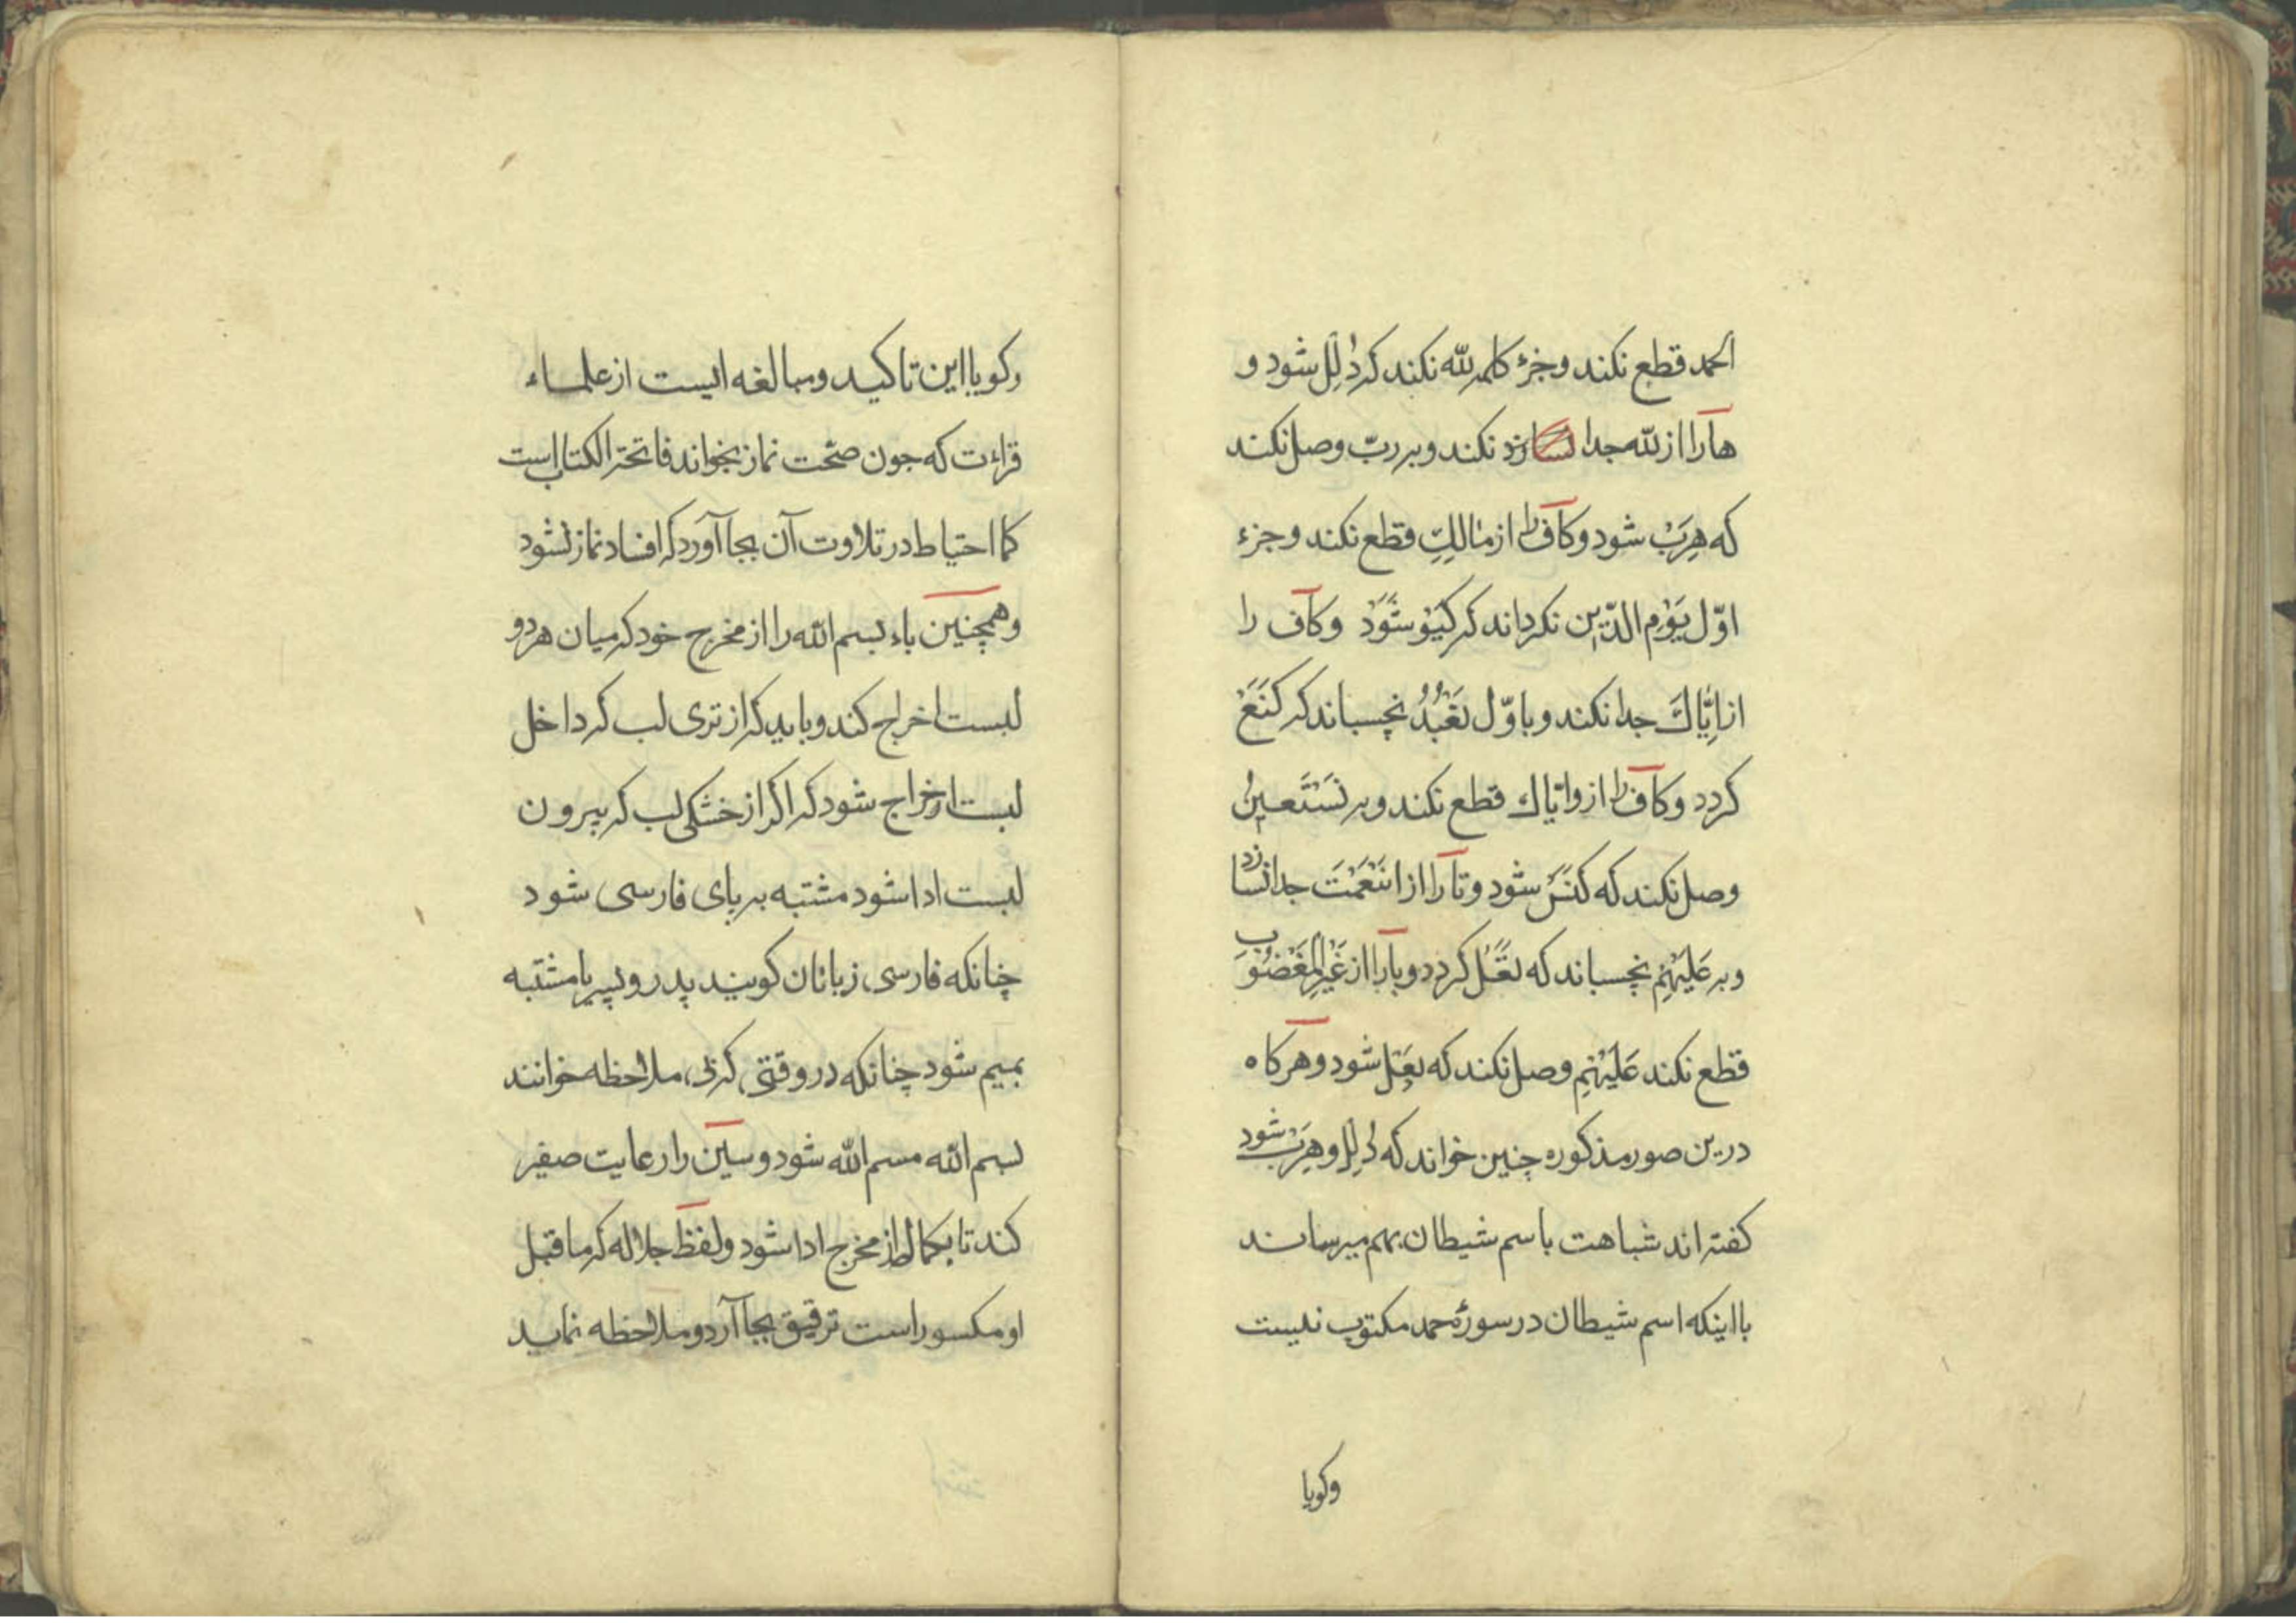 الحمد قطع نکند وجزء کلمه لله نکند که دُلِلْ شود و
ها را از لله جدا نکند وبر ربّ وصل نکند
که هِرَبْ شود وکاف را از مالکِ قطع نکند وجزء
اوّل یَوْمِ الدّین نکرداند که کَیَوْ شَوَدْ وکاف را
از اِیَّاكَ جدا نکند وباوّل نَعْبُدُ نچسباند که کَنَعْ
کردد وکاف را از وایّاك قطع نکند وبر نَسْتَعینُ
وصل نکند که کَنَسْ شود وتا را از اَنْعَمْتَ جدا نسازد
وبر عَلَیْهِمْ نچسباند که تَعَلْ کردد وبا را از غَیْرِ الْمَغْضُوبِ
قطع نکند عَلَیْهِمْ وصل نکند که بِعَلْ شود وهرکاه
درین صور مذکوره چنین خواند که دُلِلْ وهِرَبْ شود
کفته اند شباهت باسم شیطان بهم میرساند
با اینکه اسم شیطان در سورۀ حمد مکتوب نیست
وکویا
وکویا این تاکید ومبالغه ایست از علماء
قراءت که جون صحّت نماز بخواند فاتحة الکتاب است
کما احتیاط در تلاوت آن بجا آورد که افساد نماز نشود
وهمچنین باء بسم الله را از مخرج خود که میان هر دو
لبست اخراج کند وباید که از تری لب که داخل
لبست اخراج شود که اکر از خشکی لب که بیرون
لبست ادا شود مشتبه بر پای فارسی شود
چنانکه فارسی زبانان کویند پدر وپسر یا مشتبه
بمیم شود چنانکه در وقتی که بی ملاحظه خوانند
بسم الله مسم الله شود وسین را رعایت صفیر
کند تا بکمال از مخرج ادا شود ولفظ جلاله که ماقبل
او مکسور است ترقیق بجا آرد وملاحظه نماید